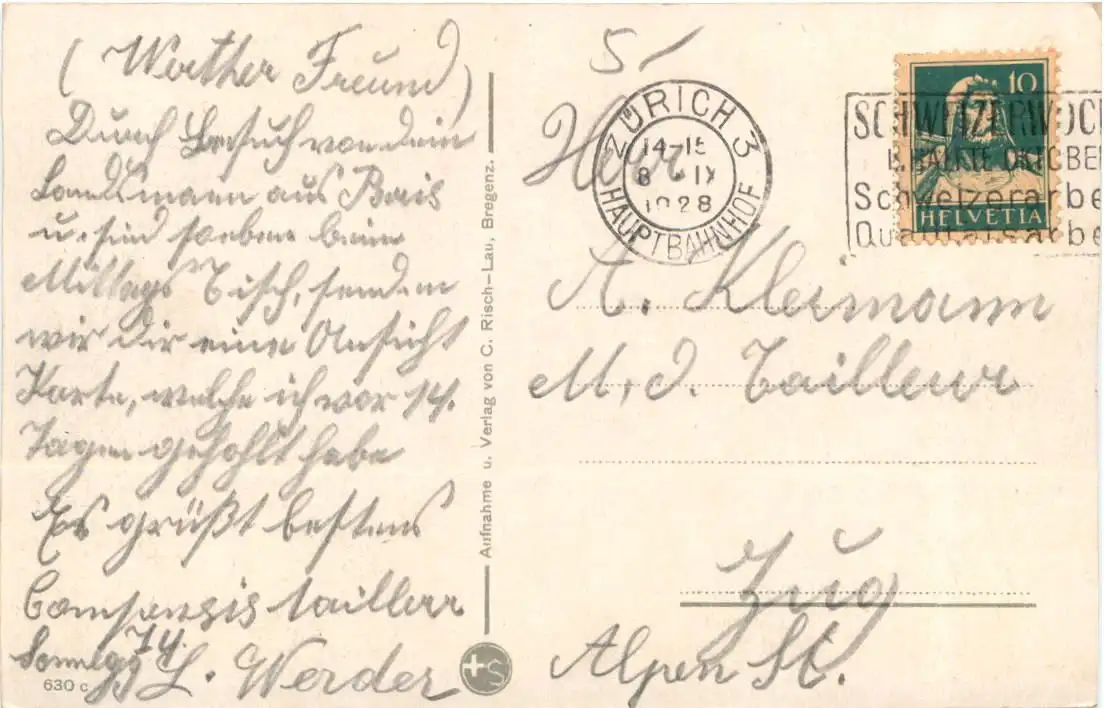 (Werther Freund)
Durch Besuch von dein
Landsmann aus Paris
u. sind soeben beim
Mittags Tisch, senden
wir dir eine Ansicht
Karte, welche ich vor 14.
Tagen geholt habe
Es grüßt bestens
tailleur
Sonnegg 74.
L. Werder
630 c
Aufnahme u. Verlag von C. Risch-Lau, Bregenz.
+S
5/
ZÜRICH 3
14-15
8 IX
1928
HAUPTBAHNHOF
SCHWEIZERWOCH
OKTOBER
Schweizerarbe
Qualitätsarbe
10
HELVETIA
Herr
A. Kleimann
M. d. Tailleur
Zug
Alpen St.